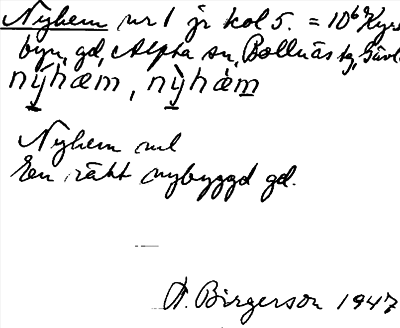 Nyhem nr 1 jr kol 5. = 10⁶⁹ Kyrk
byn, gd, Alpha sn, Bollnäs tg, Gävl
nýhæm, nỳhæ̀m
Nyhem nul
En rätt nybyggd gd.
A. Birgerson 1947